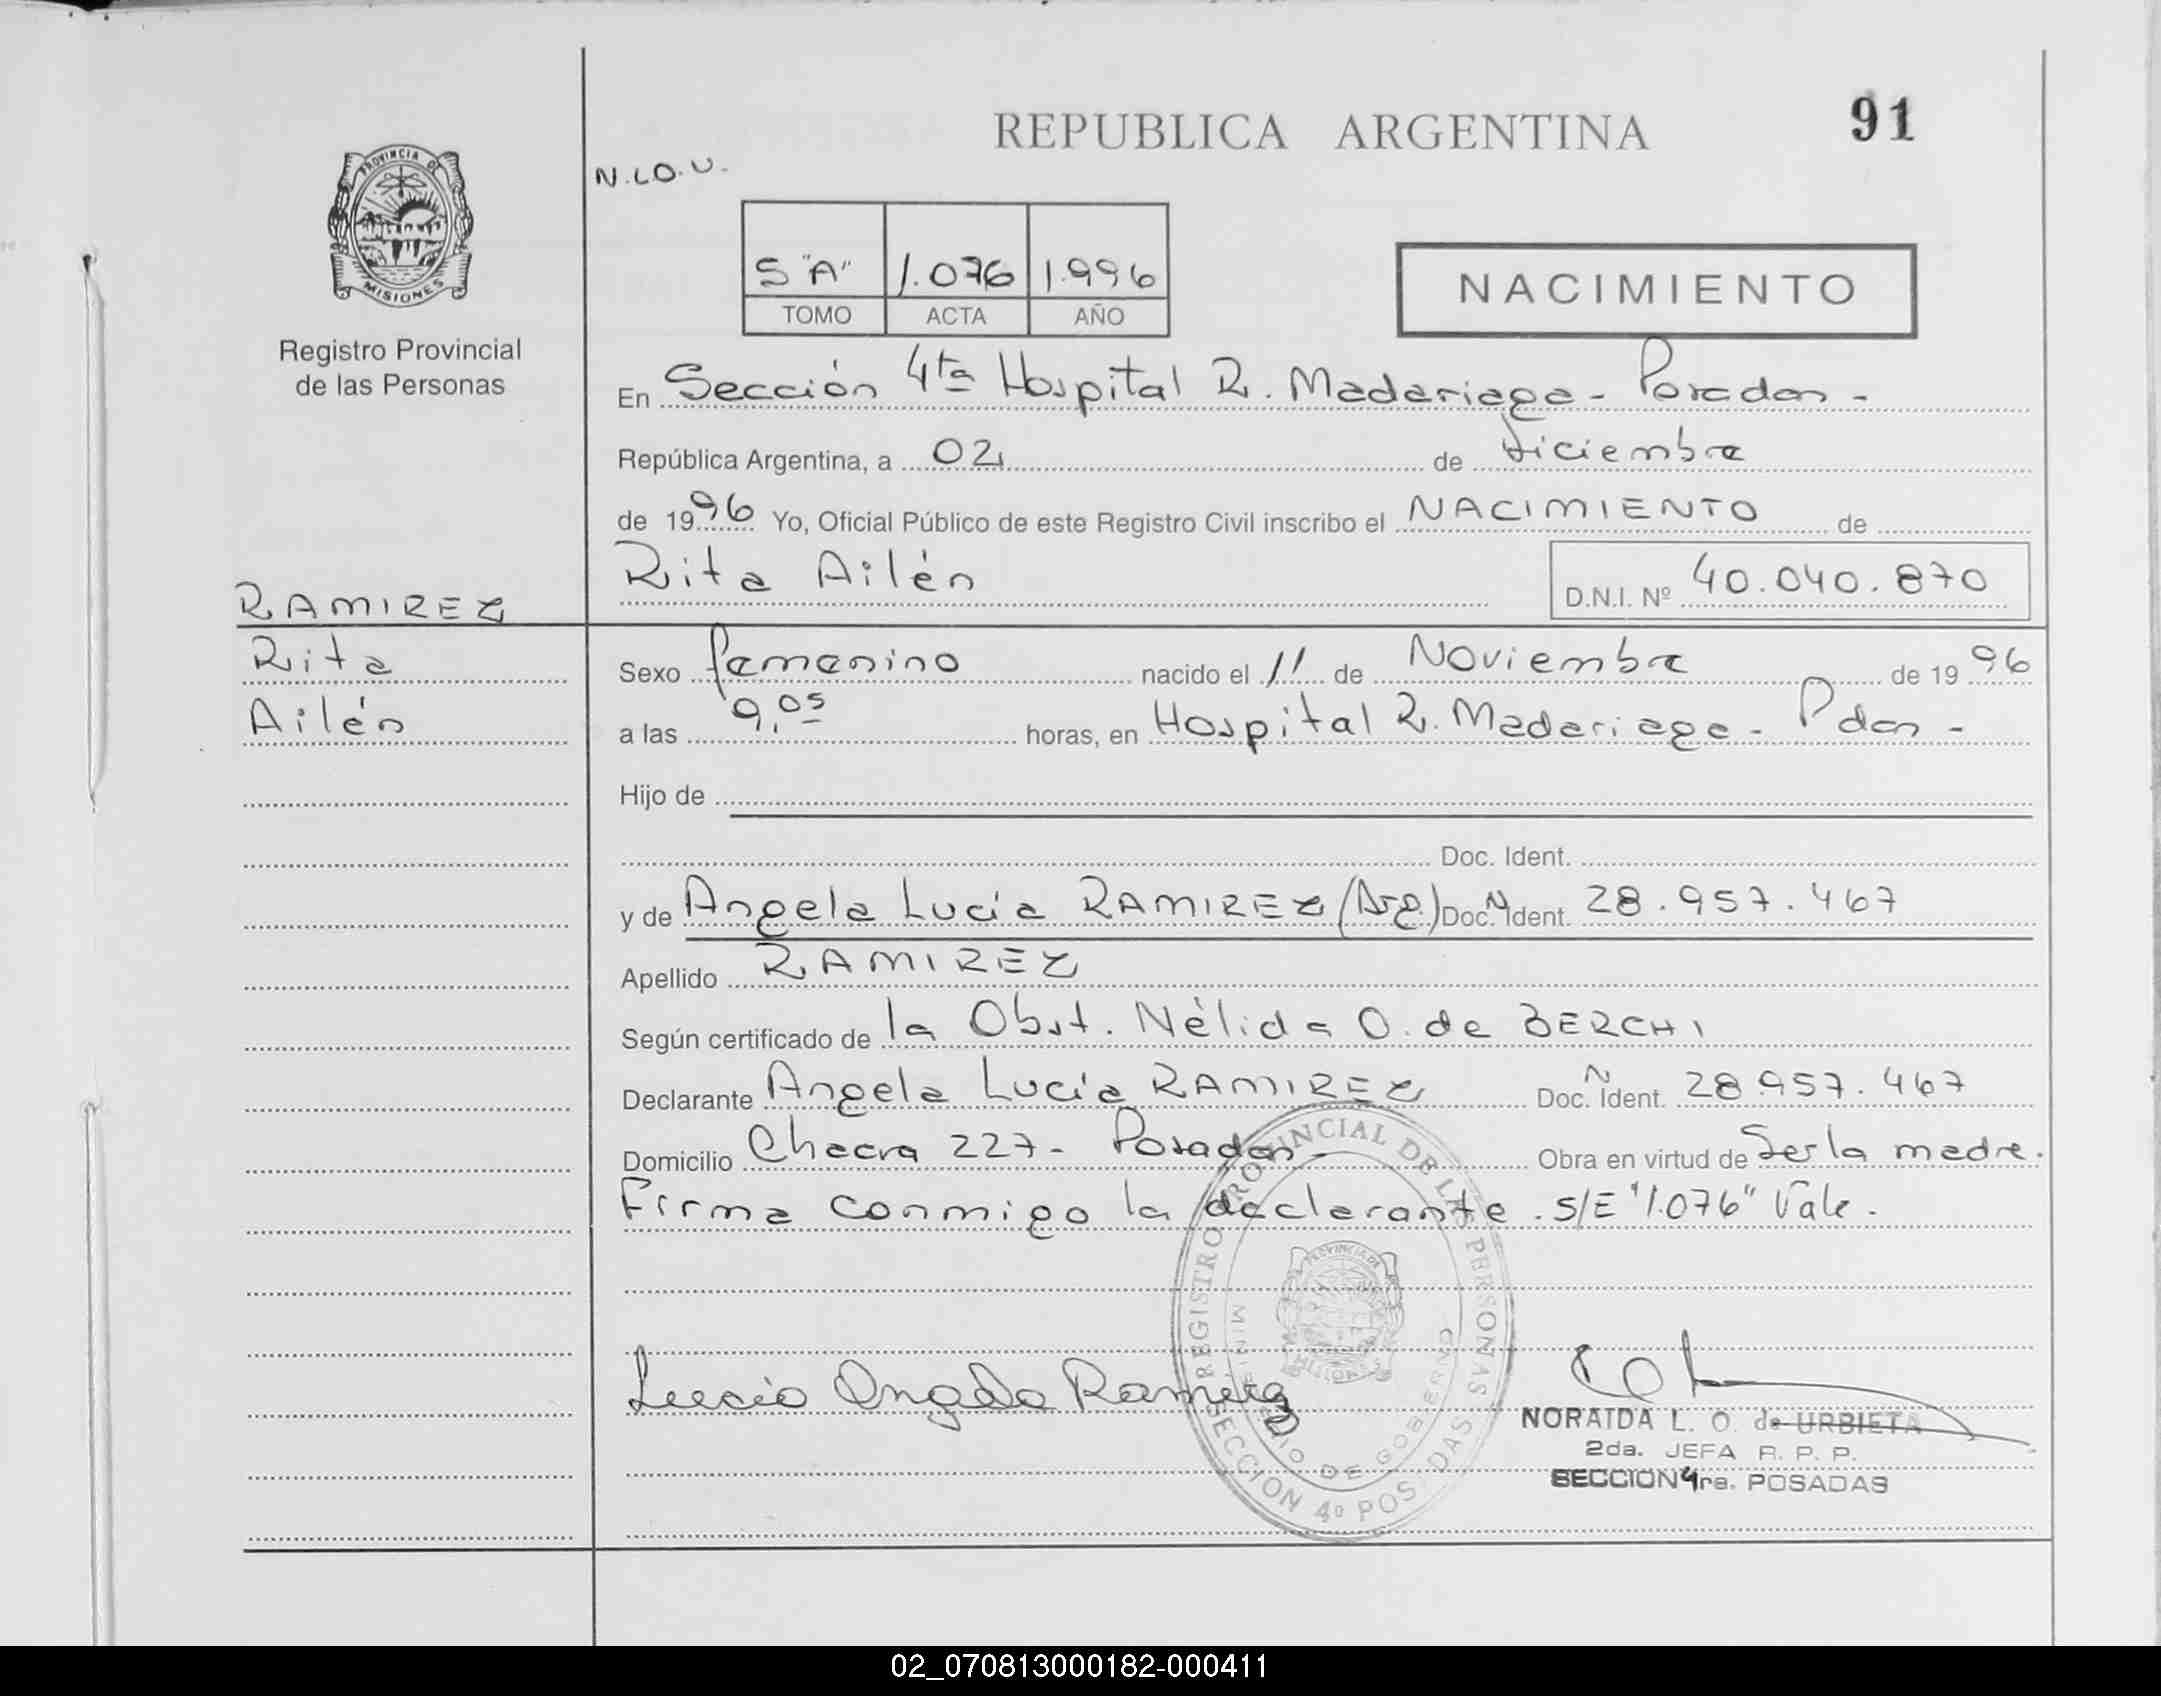 REPUBLICA ARGENTINA
91
PROVINCIA DE
MISIONES
Registro Provincial
de las Personas
N.LO.U.
S "A" 1.076 1.996
TOMO ACTA AÑO
NACIMIENTO
En Sección 4ta Hospital R. Madariaga - Posadas -
República Argentina, a 02 de Diciembre
de 1996 Yo, Oficial Público de este Registro Civil inscribo el NACIMIENTO de
Rita Ailén D.N.I. Nº 40.040.870
RAMIREZ
Rita
Ailén
Sexo femenino nacido el 11 de Noviembre de 1996
a las 9,05 horas, en Hospital R. Madariaga - Pdas -
Hijo de
Doc. Ident.
y de Angela Lucía RAMIREZ (Arg.) Doc. N Ident. 28.957.467
Apellido RAMIREZ
Según certificado de la Obst. Nélida O. de BERCHI
Declarante Angela Lucía RAMIREZ Doc. N Ident. 28.957.467
Domicilio Chacra 227 - Posadas - Obra en virtud de Ser la madre.
Firma conmigo la declarante. S/E "1.076" Vale.
REGISTRO PROVINCIAL DE LAS PERSONAS
PROVINCIA DE
MISIONES
MINISTERIO DE GOBIERNO
SECCION 4º POSADAS
Lucia Angela Ramirez
NORAIDA L. O. de URBIETA
2da. JEFA R. P. P.
SECCION 4ra. POSADAS
02_070813000182-000411